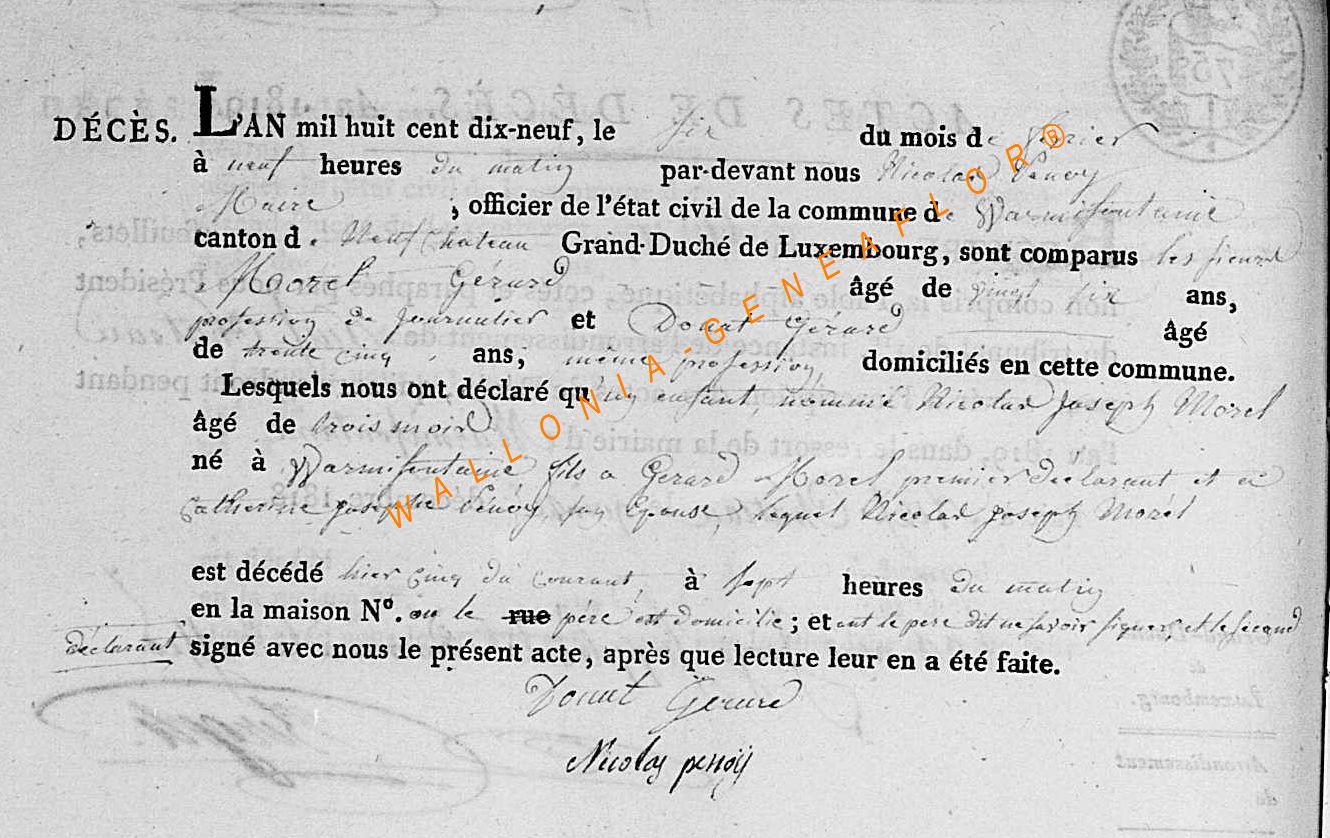 DÉCÈS. L'AN mil huit cent dix-neuf, le six du mois de février
à neuf heures du matin par-devant nous Nicolas
Maire, officier de l'état civil de la commune de Warmifontaine
canton de Neufchateau Grand-Duché de Luxembourg, sont comparus les sieurs
Morel Gérard âgé de vingt six ans,
profession de journalier et Donat Gérard âgé
de trente cinq ans, même profession, domiciliés en cette commune.
Lesquels nous ont déclaré qu'un enfant, nommé Nicolas Joseph Morel
âgé de trois mois
né à Warmifontaine fils a Gerard Morel premier declarant et à
Catherine josephe son Epouse, lequel Nicolas joseph Morel
est décédé hier cinq du courant, à sept heures du matin
en la maison Nº. ou le rue père est domicilié ; et ont le pere dit ne savoir signer, et le second
déclarant signé avec nous le présent acte, après que lecture leur en a été faite.
Donat Gerard
Nicolas
WALLONIA-GENEAFLOR®